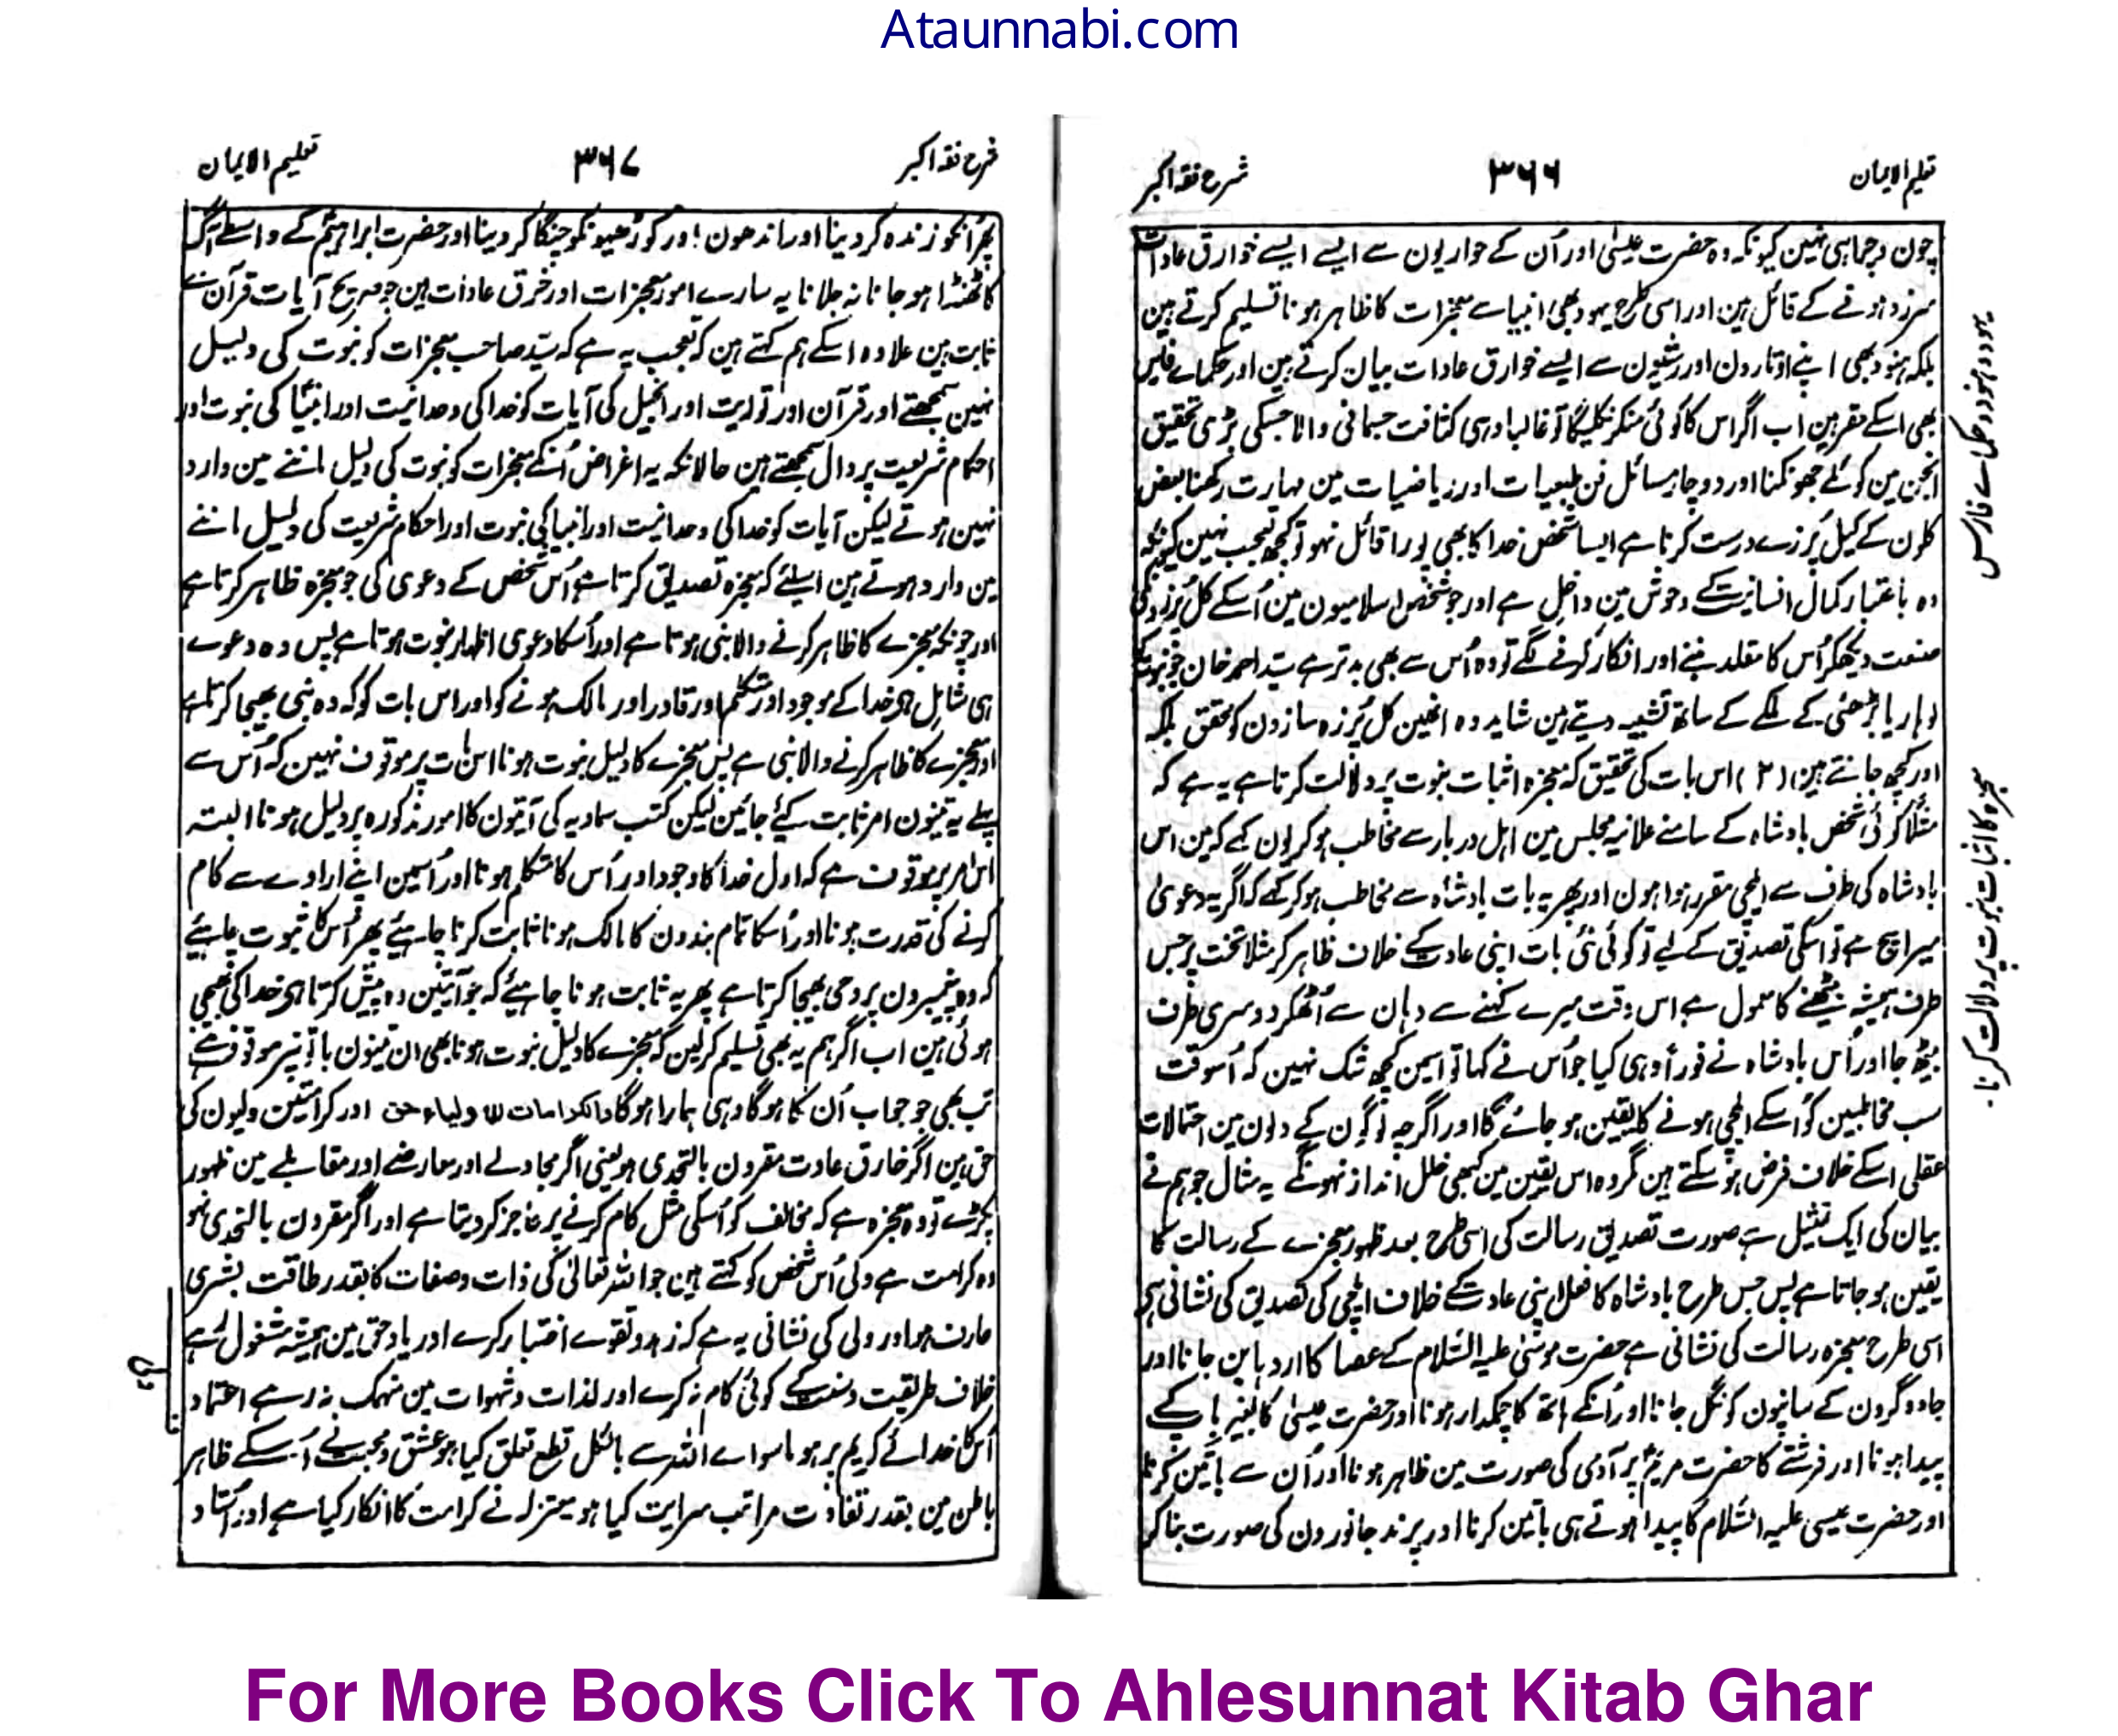 Ataunnabi.com
تعلیم الایمان
۳۶۶
شرح فقہ اکبر
چون وچرا ہی نہین کیونکہ وہ حضرت عیسیٰ اور اُن کے حواریون سے ایسے ایسے خوارق عادات
سرزد ہونے کے قائل ہین اور اسی طرح یہود بھی انبیا سے معجزات کا ظاہر ہونا تسلیم کرتے ہین
بلکہ ہنود بھی اپنے اوتارون اور رشیون سے ایسے خوارق عادات بیان کرتے ہین اور حکماے فارس
بھی اسکے مقر ہین اب اگر اس کا کوئی منکر نکلیگا تو غالبا وہی کثافت جسمانی والا جسکی بڑی تحقیق
انجن مین کوئلے جھونکنا اور دو چار مسائل فن طبعیات اور ریاضیات مین مہارت رکھنا بعض
کلون کے کیل پرزے درست کرنا ہے ایسا شخص خدا کا بھی پورا قائل نہو تو کچھ تعجب نہین کیونکہ
وہ باعتبار کمال انسانیت کے وحوش مین داخل ہے اور جو شخص اسلامیون مین اُسکے کل پرزونکی
صنعت دیکھکر اُس کا مقلد بنے اور انکار کرنے لگے تو وہ اُس سے بھی بدتر ہے سید احمد خان جو نبوت کو
لوہار یا بڑھئی کے ملکے کے ساتھ تشبیہ دیتے ہین شاید وہ انھین کل پرزہ سازون کو محقق بلکہ
اور کچھ جانتے ہین (۲) اس بات کی تحقیق کہ معجزہ اثبات نبوت پر دلالت کرتا ہے یہ ہے کہ
مثلاً کوئی شخص بادشاہ کے سامنے علانیہ مجلس مین اہل دربار سے مخاطب ہو کر یون کہے کہ مین اس
بادشاہ کی طرف سے ایلچی مقرر ہوا ہون اور پھر یہ بات بادشاہ سے مخاطب ہو کر کہے کہ اگر یہ دعویٰ
میرا سچ ہے تو اسکی تصدیق کے لیے تو کوئی نئی بات اپنی عادت کے خلاف ظاہر کر مثلا تخت پر جس
طرف ہمیشہ بیٹھنے کا معمول ہے اس وقت میرے کہنے سے وہان سے اُٹھکر دوسری طرف
بیٹھ جا اور اُس بادشاہ نے فوراً وہی کیا جو اُس نے کہا تو اسمین کچھ شک نہین کہ اُسوقت
سب مخاطبین کو اُسکے ایلچی ہونے کا یقین ہو جائے گا اور اگرچہ لوگون کے دلون مین احتمالات
عقلی اسکے خلاف فرض ہو سکتے ہین مگر وہ اس یقین مین کبھی خلل انداز نہونگے یہ مثال جو ہم نے
بیان کی ایک تمثیل ہے صورت تصدیق رسالت کی اسی طرح بعد ظہور معجزے کے رسالت کا
یقین ہو جاتا ہے پس جس طرح بادشاہ کا فعل اپنی عادت کے خلاف ایلچی کی تصدیق کی نشانی ہی
اسی طرح معجزہ رسالت کی نشانی ہے حضرت موسیٰ علیہ السّلام کے عصا کا اژدہا بن جانا اور
جادوگرون کے سانپون کو نگل جانا اور اُنکے ہاتھ کا چمکدار ہونا اور حضرت عیسیٰ کا بغیر باپ کے
پیدا ہونا اور فرشتے کا حضرت مریم پر آدمی کی صورت مین ظاہر ہونا اور اُن سے باتین کرنا
اور حضرت عیسی علیہ السّلام کا پیدا ہوتے ہی باتین کرنا اور پرند جانورون کی صورت بنا کر
یہود و ہنود و حکماے فارس
معجزہ کا اثبات نبوت پر دلالت کرنا۔
شرح فقہ اکبر
۳۶۷
تعلیم الایمان
پھر اُنکو زندہ کر دینا اور اندھون اور کوڑھیونکو چنگا کر دینا اور حضرت ابراہیم کے واسطے آگ
کا ٹھنڈا ہو جانا نہ جلانا یہ سارے امور معجزات اور خرق عادات ہین جو صریح آیات قرآن سے
ثابت ہین علاوہ اسکے ہم کہتے ہین کہ تعجب یہ ہے کہ سیّد صاحب معجزات کو نبوت کی دلیل
نہین سمجھتے اور قرآن اور توریت اور انجیل کی آیات کو خدا کی وحدانیت اور انبیا کی نبوت اور
احکام شریعت پر دال سمجھتے ہین حالانکہ یہ اغراض اُنکے معجزات کو نبوت کی دلیل ماننے مین وارد
نہین ہوتے لیکن آیات کو خدا کی وحدانیت اور انبیا کی نبوت اور احکام شریعت کی دلیل ماننے
مین وارد ہوتے ہین اسلئے کہ معجزہ تصدیق کرتا ہے اُس شخص کے دعوی کی جو معجزہ ظاہر کرتا ہے
اور چونکہ معجزے کا ظاہر کرنے والا نبی ہوتا ہے اور اُسکا دعوی اظہار نبوت ہوتا ہے پس وہ دعوے
ہی شامل ہو خدا کے موجود اور متکلم اور قادر اور مالک ہونے کو اور اس بات کو کہ وہ نبی بھیجا کرتا ہے
اور معجزے کا ظاہر کرنے والا نبی ہے پس معجزے کا دلیل نبوت ہونا اس بات پر موقوف نہین کہ اُس سے
پہلے یہ تینون امر ثابت کیے جائین لیکن کتب سماویہ کی آیتون کا امور مذکورہ پر دلیل ہونا البتہ
اس امر پر موقوف ہے کہ اول خدا کا وجود اور اُس کا متکلم ہونا اور اُسمین اپنے ارادے سے کام
کرنے کی قدرت ہونا اور اُسکا تمام بندون کا مالک ہونا ثابت کرنا چاہیئے پھر اُس کا ثبوت چاہیئے
کہ وہ پیغمبرون پر وحی بھیجا کرتا ہے پھر یہ ثابت ہونا چاہیئے کہ جو آیتین وہ پیش کرتا ہی خدا کی بھیجی
ہوئی ہین اب اگر ہم یہ بھی تسلیم کر لین کہ معجزے کا دلیل نبوت ہونا بھی ان تینون باتونپر موقوف ہے
تب بھی جو جواب اُن کا ہوگا وہی ہمارا ہوگا والکرامات للاولیاء حق اور کرامتین ولیون کی
حق ہین اگر خارق عادت مقرون بالتحدی ہو یعنی اگر مجادلے اور معارضے اور مقابلے مین ظہور
پکڑے تو وہ معجزہ ہے کہ مخالف کو اُسکی مثل کام کرنے پر عاجز کر دیتا ہے اور اگر مقرون بالتحدی نہو
وہ کرامت ہے ولی اُس شخص کو کہتے ہین جو اللہ تعالیٰ کی ذات وصفات کا بقدر طاقت بشری
عارف ہو اور ولی کی نشانی یہ ہے کہ زہد و تقوے اختیار کرے اور یاد حق مین ہمیشہ مشغول رہے
خلاف طریقت و سنت کے کوئی کام نہ کرے اور لذات و شہوات مین منہمک نہ رہے اعتماد
اُس کا خدائے کریم پر ہو ماسواے اللہ سے بالکل قطع تعلق کیا ہو عشق و محبت نے اُسکے ظاہر
باطن مین بقدر تفاوت مراتب سرایت کیا ہو معتزلہ نے کرامت کا انکار کیا ہے اور اُستاد
For More Books Click To Ahlesunnat Kitab Ghar